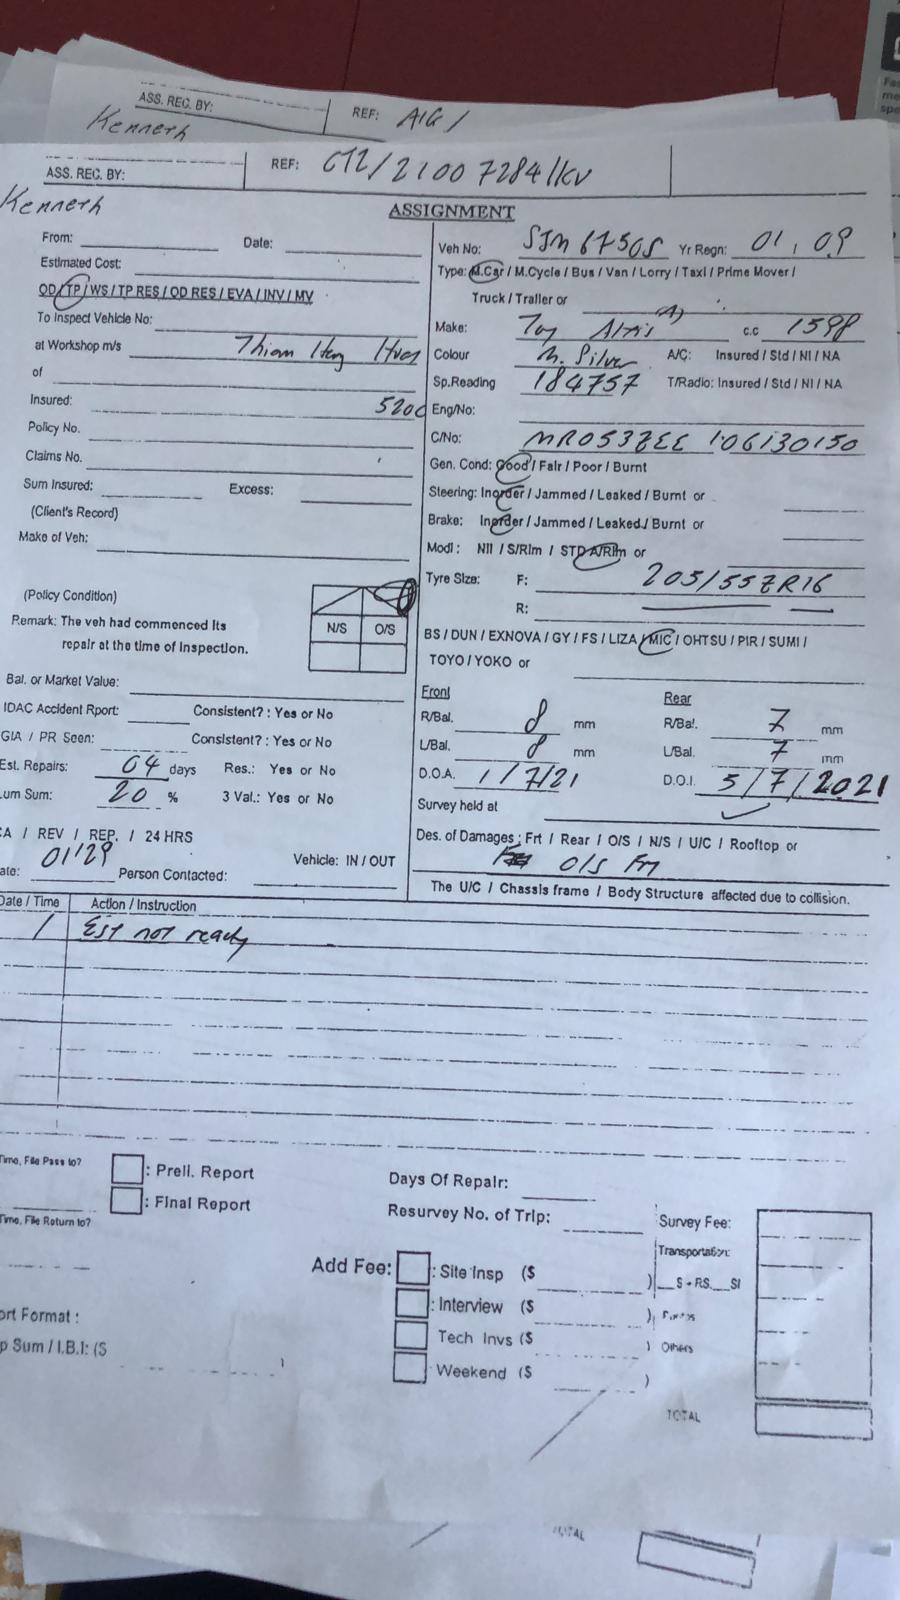 ASS. REC. BY:
REF: AIG /
Kenneth
ASS. REC. BY:
REF: CTZ/21007284/KV
Kenneth
ASSIGNMENT
From:
Date:
Estimated Cost:
OD/TP/WS/TP RES/OD RES/EVA/INV/MV
To Inspect Vehicle No:
at Workshop m/s Thiam Heng Huat
of
Insured: 520C
Policy No.
Claims No.
Sum Insured:
Excess:
(Client's Record)
Make of Veh:
(Policy Condition)
N/S O/S
Remark: The veh had commenced its
repair at the time of inspection.
Bal. or Market Value:
IDAC Accident Rport: Consistent? : Yes or No
GIA / PR Seen: Consistent? : Yes or No
Est. Repairs: 04 days Res.: Yes or No
um Sum: 20 % 3 Val.: Yes or No
A / REV / REP. / 24 HRS
01'29
Vehicle: IN / OUT
ate: Person Contacted:
Veh No: SJM 6750S Yr Regn: 01, 09
Type: M.Car / M.Cycle / Bus / Van / Lorry / Taxi / Prime Mover /
Truck / Trailer or
Make: Toy Altis (A) c.c 1598
Colour M. Silver A/C: Insured / Std / NI / NA
Sp.Reading 184757 T/Radio: Insured / Std / NI / NA
Eng/No:
C/No: MR053ZEE 106130150
Gen. Cond: Good / Fair / Poor / Burnt
Steering: Inorder / Jammed / Leaked / Burnt or
Brake: Inorder / Jammed / Leaked / Burnt or
Modi: Nil / S/Rim / STD A/Rim or
Tyre Size: F: 205/55ZR16
R:
BS / DUN / EXNOVA / GY / FS / LIZA / MIC / OHTSU / PIR / SUMI /
TOYO / YOKO or
Front Rear
R/Bal. 8 mm R/Bal. 7 mm
L/Bal. 8 mm L/Bal. 7 mm
D.O.A. 1/7/21 D.O.I. 5/7/2021
Survey held at
Des. of Damages: Frt / Rear / O/S / N/S / U/C / Rooftop or
O/S Frt
The U/C / Chassis frame / Body Structure affected due to collision.
Date / Time Action / Instruction
/ Est not ready
Time, File Pass to?
: Preli. Report
: Final Report
Time, File Return to?
Days Of Repair:
Resurvey No. of Trip:
Survey Fee:
Transportation:
Add Fee: : Site Insp ($ ) S + RS SI
: Interview ($ )
Tech Invs ($ ) Others
Weekend ($ )
ort Format :
p Sum / I.B.I: ($ )
TOTAL